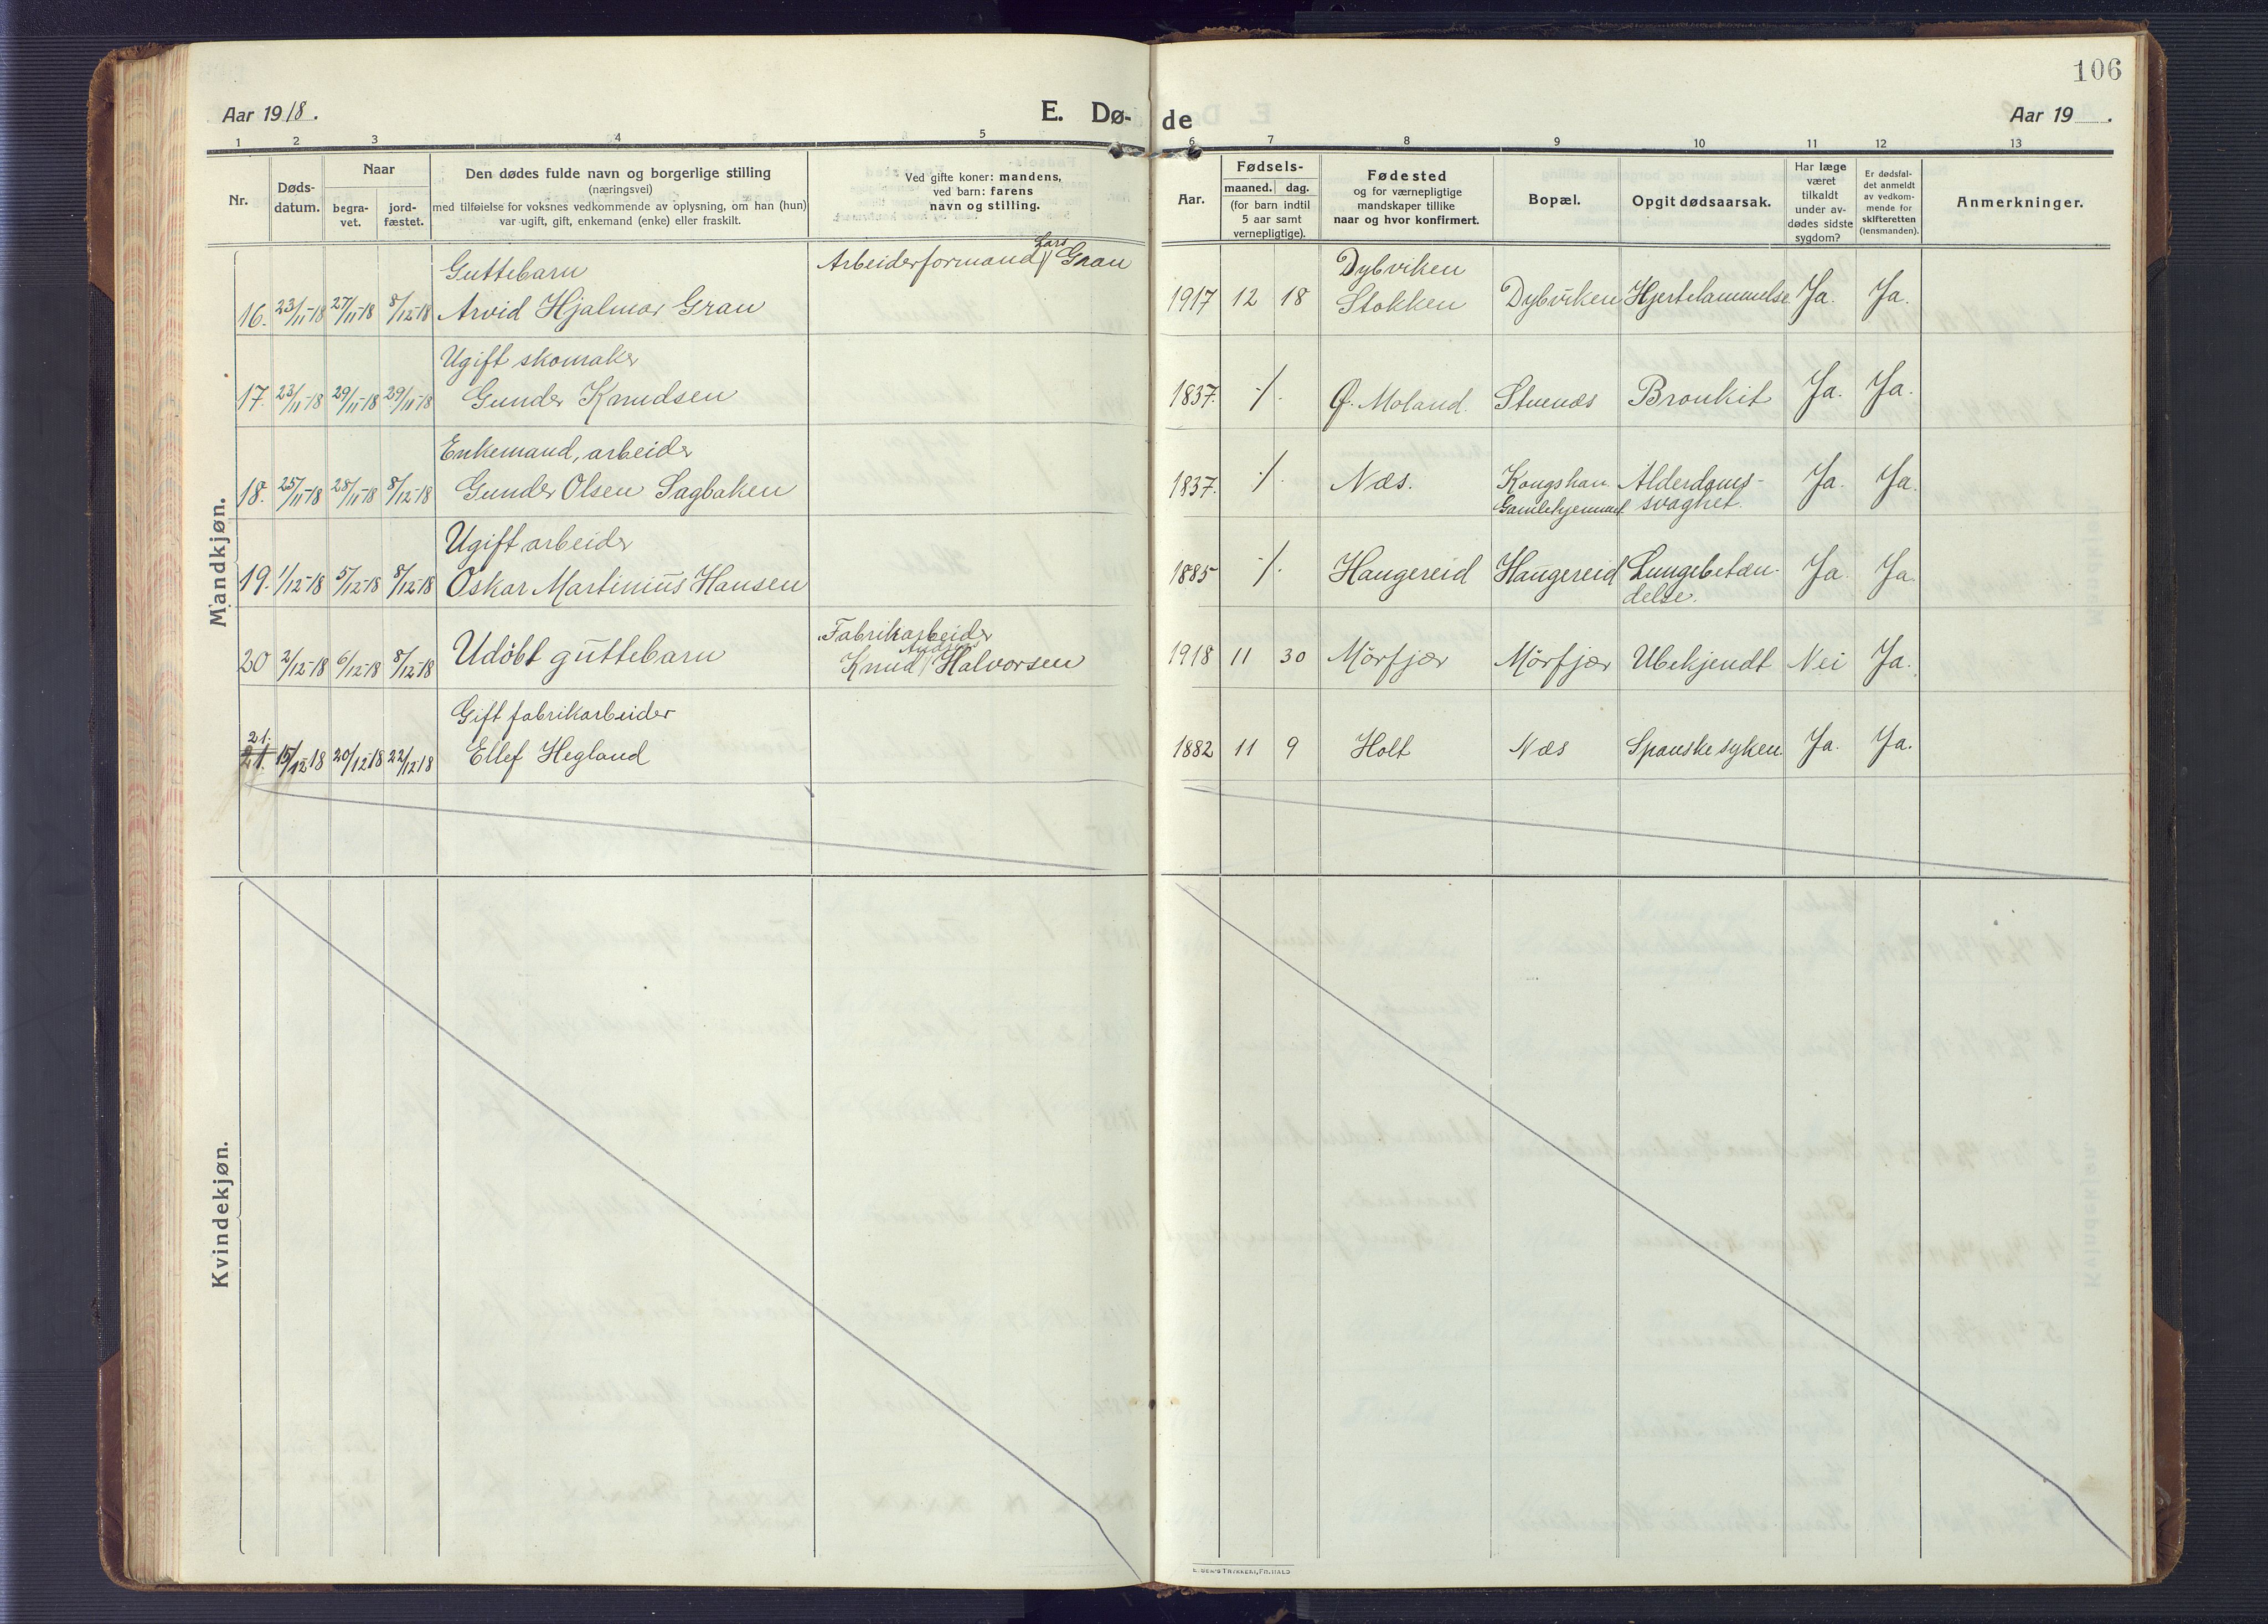 106
Aar 1918.
E. Dø-
de
Aar 19 .
1 2 3 4 5
6 7 8 9 10 11 12 13
Nr.
Døds-
datum.
Naar
begra-
vet.
jord-
fæstet.
Den dødes fulde navn og borgerlige stilling
(næringsvei)
med tilføielse for voksnes vedkommende av oplysning, om han (hun)
var ugift, gift, enkemand (enke) eller fraskilt.
Ved gifte koner: mandens,
ved barn: farens
navn og stilling.
Aar.
Fødsels-
maaned. dag.
(for barn indtil
5 aar samt
vernepligtige).
Fødested
og for værnepligtige
mandskaper tillike
naar og hvor konfirmert.
Bopæl.
Opgit dødsaarsak.
Har læge
været
tilkaldt
under av-
dødes sidste
sygdom?
Er dødsfal-
det anmeldt
av vedkom-
mende for
skifteretten
(lensmanden).
Anmerkninger.
Mandkjøn.
Guttebarn
Arbeiderformand Lars Gran
Dybviken
16. 23/11-18 27/11-18 8/12-18 Arvid Hjalmar Gran
1917 12 18 Stokken Dybviken Hjertelammelse Ja. Ja.
Ugift skomaker
17. 23/11-18 29/11-18 29/11-18 Gunder Knudsen
1837. ./. Ø. Moland. Stuenæs Bronkit Ja. Ja.
Enkemand, arbeider
18. 25/11-18 28/11-18 8/12-18 Gunder Olsen Sagbaken
1837. ./. Næs. Kongshan. Alderdoms- Ja. Ja.
Gamlehjem svaghet.
Ugift arbeider
19. 1/12-18 5/12-18 8/12-18 Oskar Martinius Hansen
1885 ./. Haugereid Haugereid Lungebetæn- Ja. Ja.
delse.
Fabrikarbeider
20 2/12-18 6/12-18 8/12-18 Udöbt guttebarn Knud Andreas Halvorsen
1918 11 30 Mörfjær Mörfjær Ubekjendt Nei Ja.
Gift fabrikarbeider
21.
21. 15/12-18 20/12-18 22/12-18 Ellef Hegland
1882 11 9 Holt Næs Spanske syken. Ja. Ja.
Kvindekjøn.